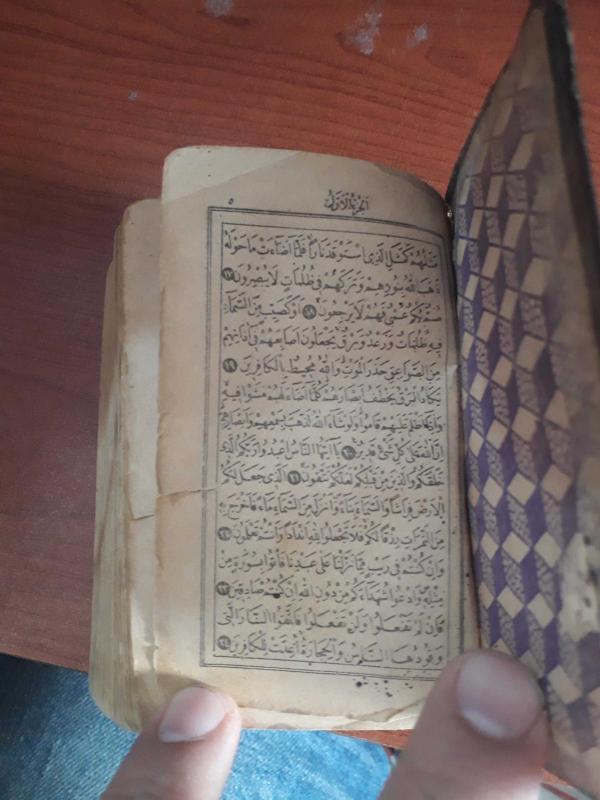 الجزء الاول ٥
مَثَلُهُمْ كَمَثَلِ الَّذِى اسْتَوْقَدَ نَارًا فَلَمَّا اَضَاءَتْ مَا حَوْلَهُ
ذَهَبَ اللهُ بِنُورِهِمْ وَتَرَكَهُمْ فِى ظُلُمَاتٍ لَا يُبْصِرُونَ ١٧
صُمٌّ بُكْمٌ عُمْىٌ فَهُمْ لَا يَرْجِعُونَ ١٨ اَوْ كَصَيِّبٍ مِنَ السَّمَاءِ
فِيهِ ظُلُمَاتٌ وَرَعْدٌ وَبَرْقٌ يَجْعَلُونَ اَصَابِعَهُمْ فِى اٰذَانِهِمْ
مِنَ الصَّوَاعِقِ حَذَرَ الْمَوْتِ وَاللهُ مُحِيطٌ بِالْكَافِرِينَ ١٩
يَكَادُ الْبَرْقُ يَخْطَفُ اَبْصَارَهُمْ كُلَّمَا اَضَاءَ لَهُمْ مَشَوْا فِيهِ
وَاِذَا اَظْلَمَ عَلَيْهِمْ قَامُوا وَلَوْ شَاءَ اللهُ لَذَهَبَ بِسَمْعِهِمْ وَاَبْصَارِهِمْ
اِنَّ اللهَ عَلَى كُلِّ شَىْءٍ قَدِيرٌ ٢٠ يَا اَيُّهَا النَّاسُ اعْبُدُوا رَبَّكُمُ الَّذِى
خَلَقَكُمْ وَالَّذِينَ مِنْ قَبْلِكُمْ لَعَلَّكُمْ تَتَّقُونَ ٢١ اَلَّذِى جَعَلَ لَكُمُ
الْاَرْضَ فِرَاشًا وَالسَّمَاءَ بِنَاءً وَاَنْزَلَ مِنَ السَّمَاءِ مَاءً فَاَخْرَجَ بِهِ
مِنَ الثَّمَرَاتِ رِزْقًا لَكُمْ فَلَا تَجْعَلُوا لِلهِ اَنْدَادًا وَاَنْتُمْ تَعْلَمُونَ ٢٢
وَاِنْ كُنْتُمْ فِى رَيْبٍ مِمَّا نَزَّلْنَا عَلَى عَبْدِنَا فَأْتُوا بِسُورَةٍ مِنْ
مِثْلِهِ وَادْعُوا شُهَدَاءَكُمْ مِنْ دُونِ اللهِ اِنْ كُنْتُمْ صَادِقِينَ ٢٣
فَاِنْ لَمْ تَفْعَلُوا وَلَنْ تَفْعَلُوا فَاتَّقُوا النَّارَ الَّتِى
وَقُودُهَا النَّاسُ وَالْحِجَارَةُ اُعِدَّتْ لِلْكَافِرِينَ ٢٤